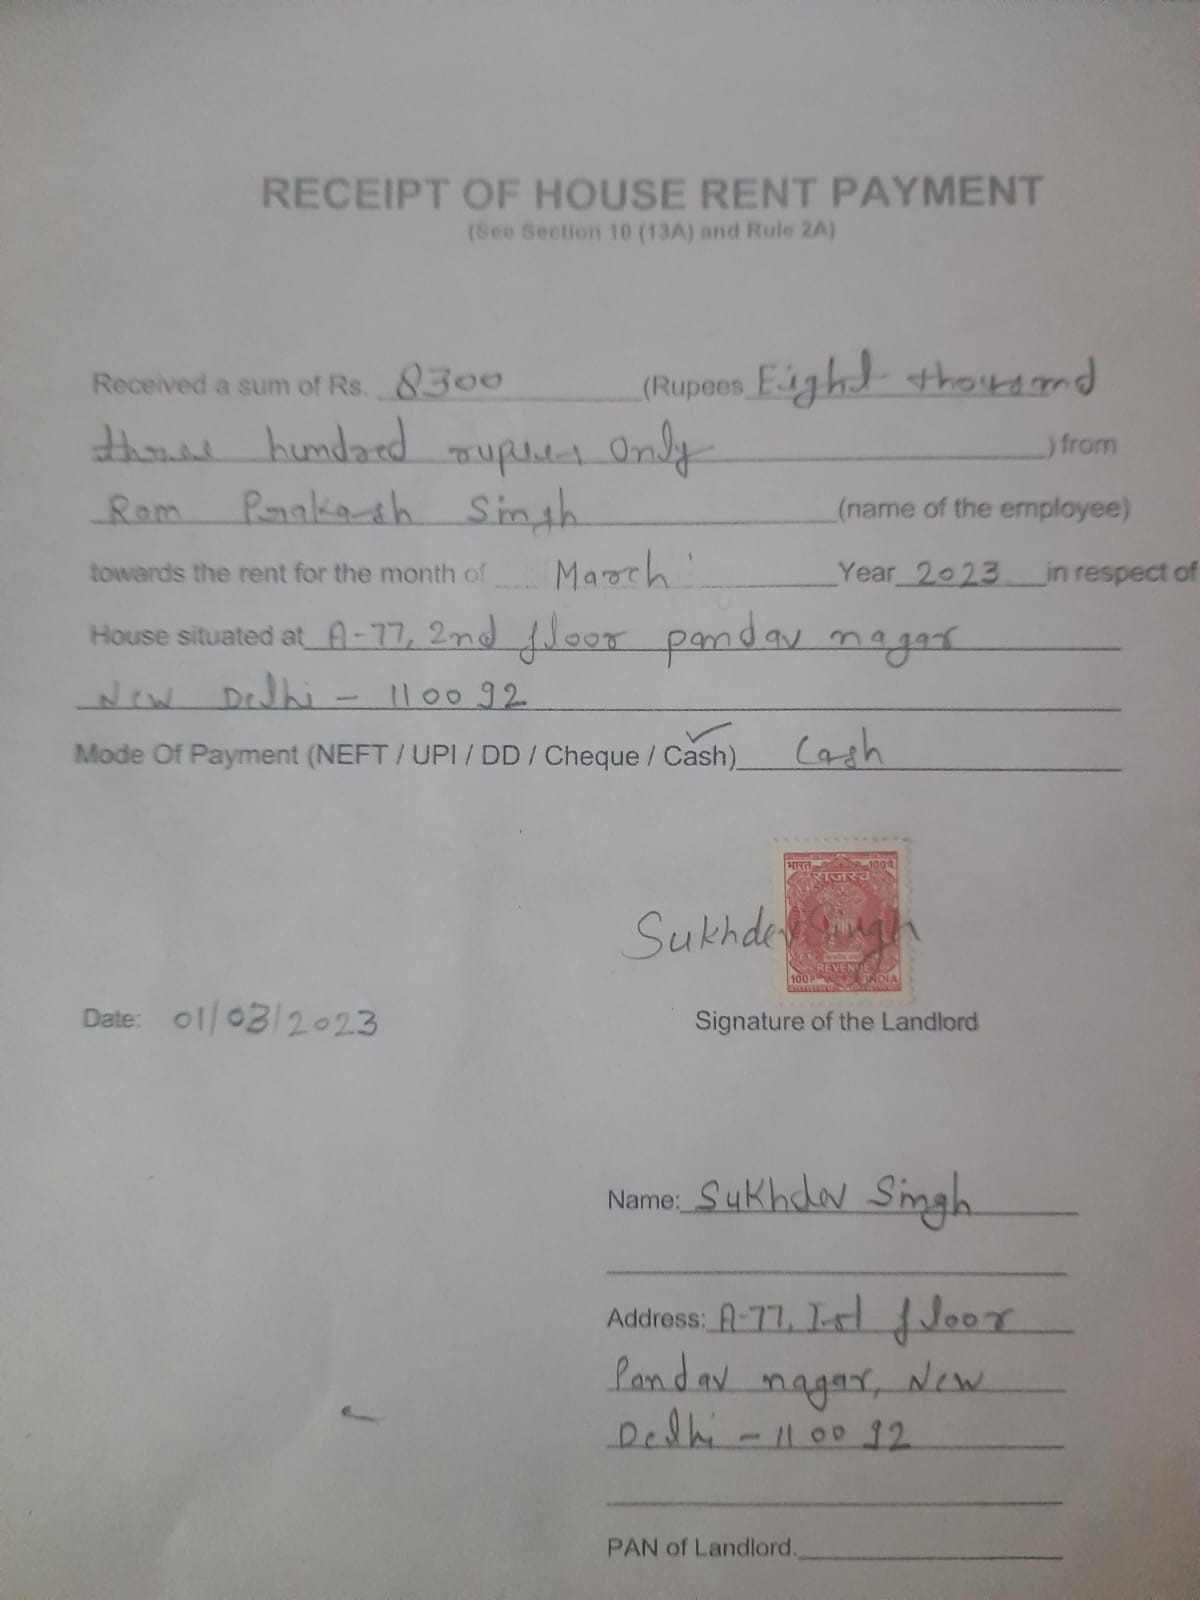 RECEIPT OF HOUSE RENT PAYMENT
(See Section 10 (13A) and Rule 2A)
Received a sum of Rs. 8300 (Rupees Eight thousand
three hundred rupees only ) from
Ram Prakash Singh (name of the employee)
towards the rent for the month of March Year 2023 in respect of
House situated at A-77, 2nd floor pandav nagar
New Delhi - 110092
Mode Of Payment (NEFT / UPI / DD / Cheque / Cash) Cash
भारत 100पै
राजस्व
Sukhdev Singh
REVENUE
100P INDIA
Date: 01/03/2023 Signature of the Landlord
Name: Sukhdev Singh
Address: A-77, Ist floor
Pandav nagar, New
Delhi - 110092
PAN of Landlord.